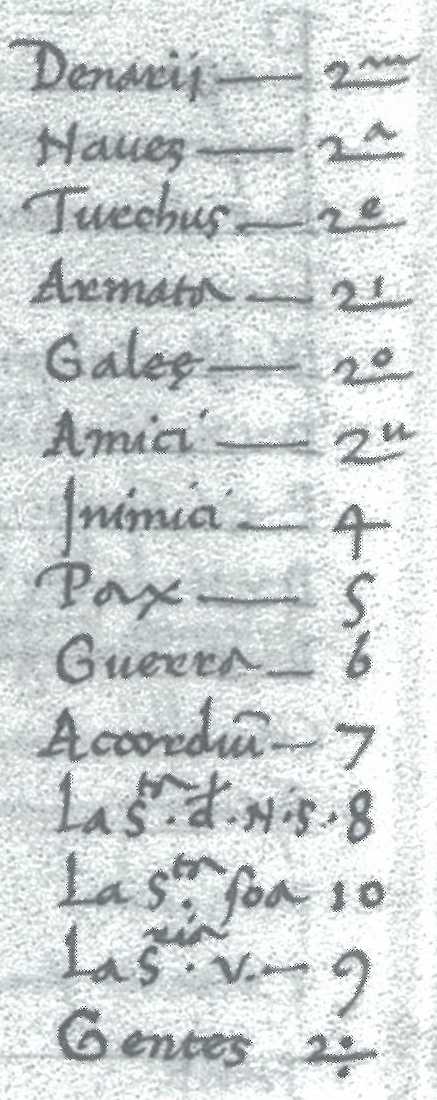 Denarij — 2ᵐ
Naues — 2ᵃ
Turchus — 2ᵉ
Armata — 2ⁱ
Galeę — 2ᵒ
Amici — 2ᵘ
Inimici — 4
Pax — 5
Guerra — 6
Accordiū — 7
La S.ᵗᵃ d. N. S. 8
La S.ᵗᵃ soa 10
La S.ʳⁱᵃ V. — 9
Gentes 2